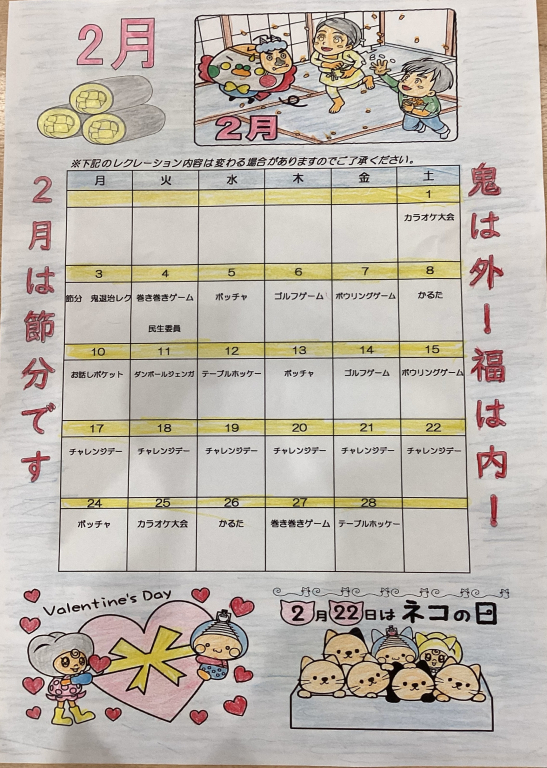 2月
2月
※下記のレクレーション内容は変わる場合がありますのでご了承ください。
2月は節分です
鬼は外！福は内！
月 火 水 木 金 土
1
カラオケ大会
3 4 5 6 7 8
節分　鬼退治レク 巻き巻きゲーム ボッチャ ゴルフゲーム ボウリングゲーム かるた
民生委員
10 11 12 13 14 15
お話しポケット ダンボールジェンガ テーブルホッケー ボッチャ ゴルフゲーム ボウリングゲーム
17 18 19 20 21 22
チャレンジデー チャレンジデー チャレンジデー チャレンジデー チャレンジデー チャレンジデー
24 25 26 27 28
ボッチャ カラオケ大会 かるた 巻き巻きゲーム テーブルホッケー
Valentine's Day
2月22日はネコの日